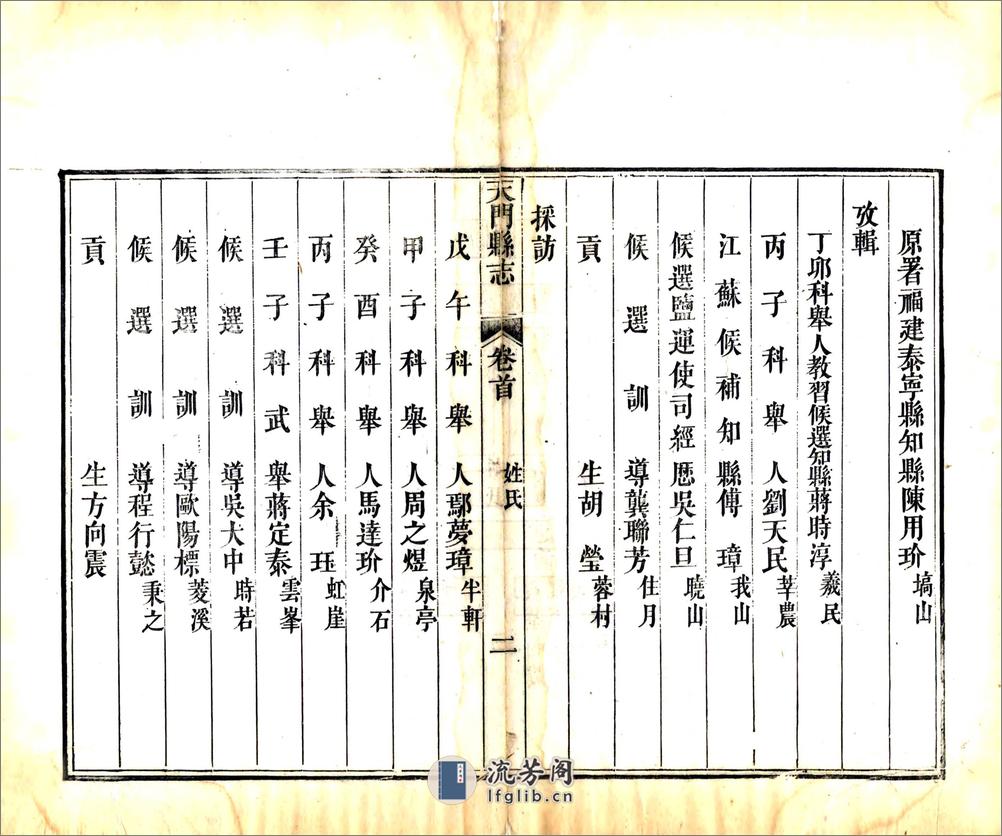 原署福建泰寧縣知縣陳用玠塙山
攷輯
丁卯科舉人教習候選知縣蔣時淳羲民
丙子科舉人劉天民莘農
江蘇候補知縣傅璋我山
候選鹽運使司經歷吳仁旦曉山
候選訓導龔聯芳住月
貢生胡瑩蓉村
採訪
天門縣志
卷首
姓氏
二
戊午科舉人鄢夢璋半軒
甲子科舉人周之煜泉亭
癸酉科舉人馬達玠介石
丙子科舉人余珏虹崖
壬子科武舉蔣定泰雲峯
候選訓導吳大中時若
候選訓導歐陽標菱溪
候選訓導程行懿秉之
貢生方向震
流芳阁
lfglib.cn